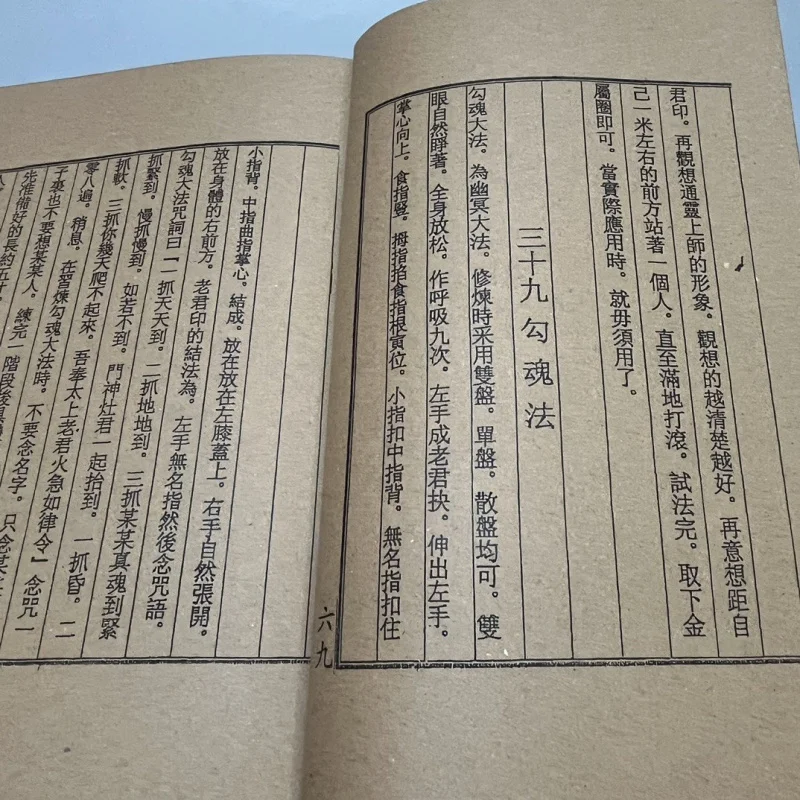 君印。再觀想通靈上師的形象。觀想的越清楚越好。再意想距自
己一米左右的前方站著一個人。直至滿地打滾。試法完。取下金
屬圈即可。當實際應用時。就毋須用了。
三十九勾魂法
勾魂大法。為幽冥大法。修煉時采用雙盤。單盤。散盤均可。雙
眼自然睜著。全身放松。作呼吸九次。左手成老君抉。伸出左手。
掌心向上。食指豎。拇指掐食指根寅位。小指扣中指背。無名指扣住
六九
小指背。中指曲指掌心。結成。放在放在左膝蓋上。右手自然張開。
放在身體的右前方。老君印的結法為。左手無名指然後念咒語。
勾魂大法咒詞曰『一抓天天到。二抓地地到。三抓某某真魂到緊
抓緊到。慢抓慢到。如若不到。門神灶君一起抬到。一抓昏。二
抓軟。三抓你幾天爬不起來。吾奉太上老君火急如律令』念咒一
零八遍。稍息。在習煉勾魂大法時。不要念名字。只念某
子裏也不要想某某人。練完一階段後
先准備好的長約五寸